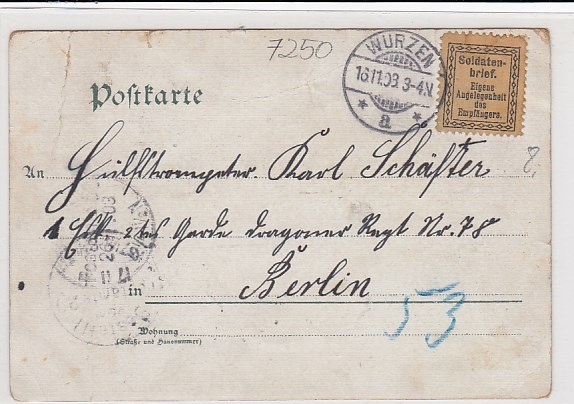 7250
WURZEN
16.11.03 3-4N.
* a *
Soldaten-
brief.
Eigene
Angelegenheit
des
Empfängers.
Postkarte
An Hülfstrompeter Karl Schäfter
8.
1 Esk. 2tes Garde Dragoner Regt Nr. 78
in Berlin
53
Wohnung
(Straße und Hausnummer)